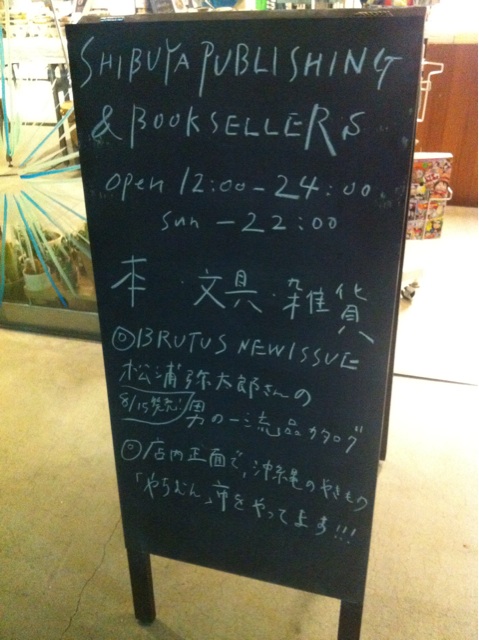 SHIBUYA PUBLISHING
& BOOKSELLERS
open 12:00-24:00
sun -22:00
本・文具・雑貨
◎BRUTUS NEW ISSUE
松浦弥太郎さんの
8/15発売 男の一流品カタログ
◎店内正面で、沖縄のやきもの
「やちむん」市をやってます!!!